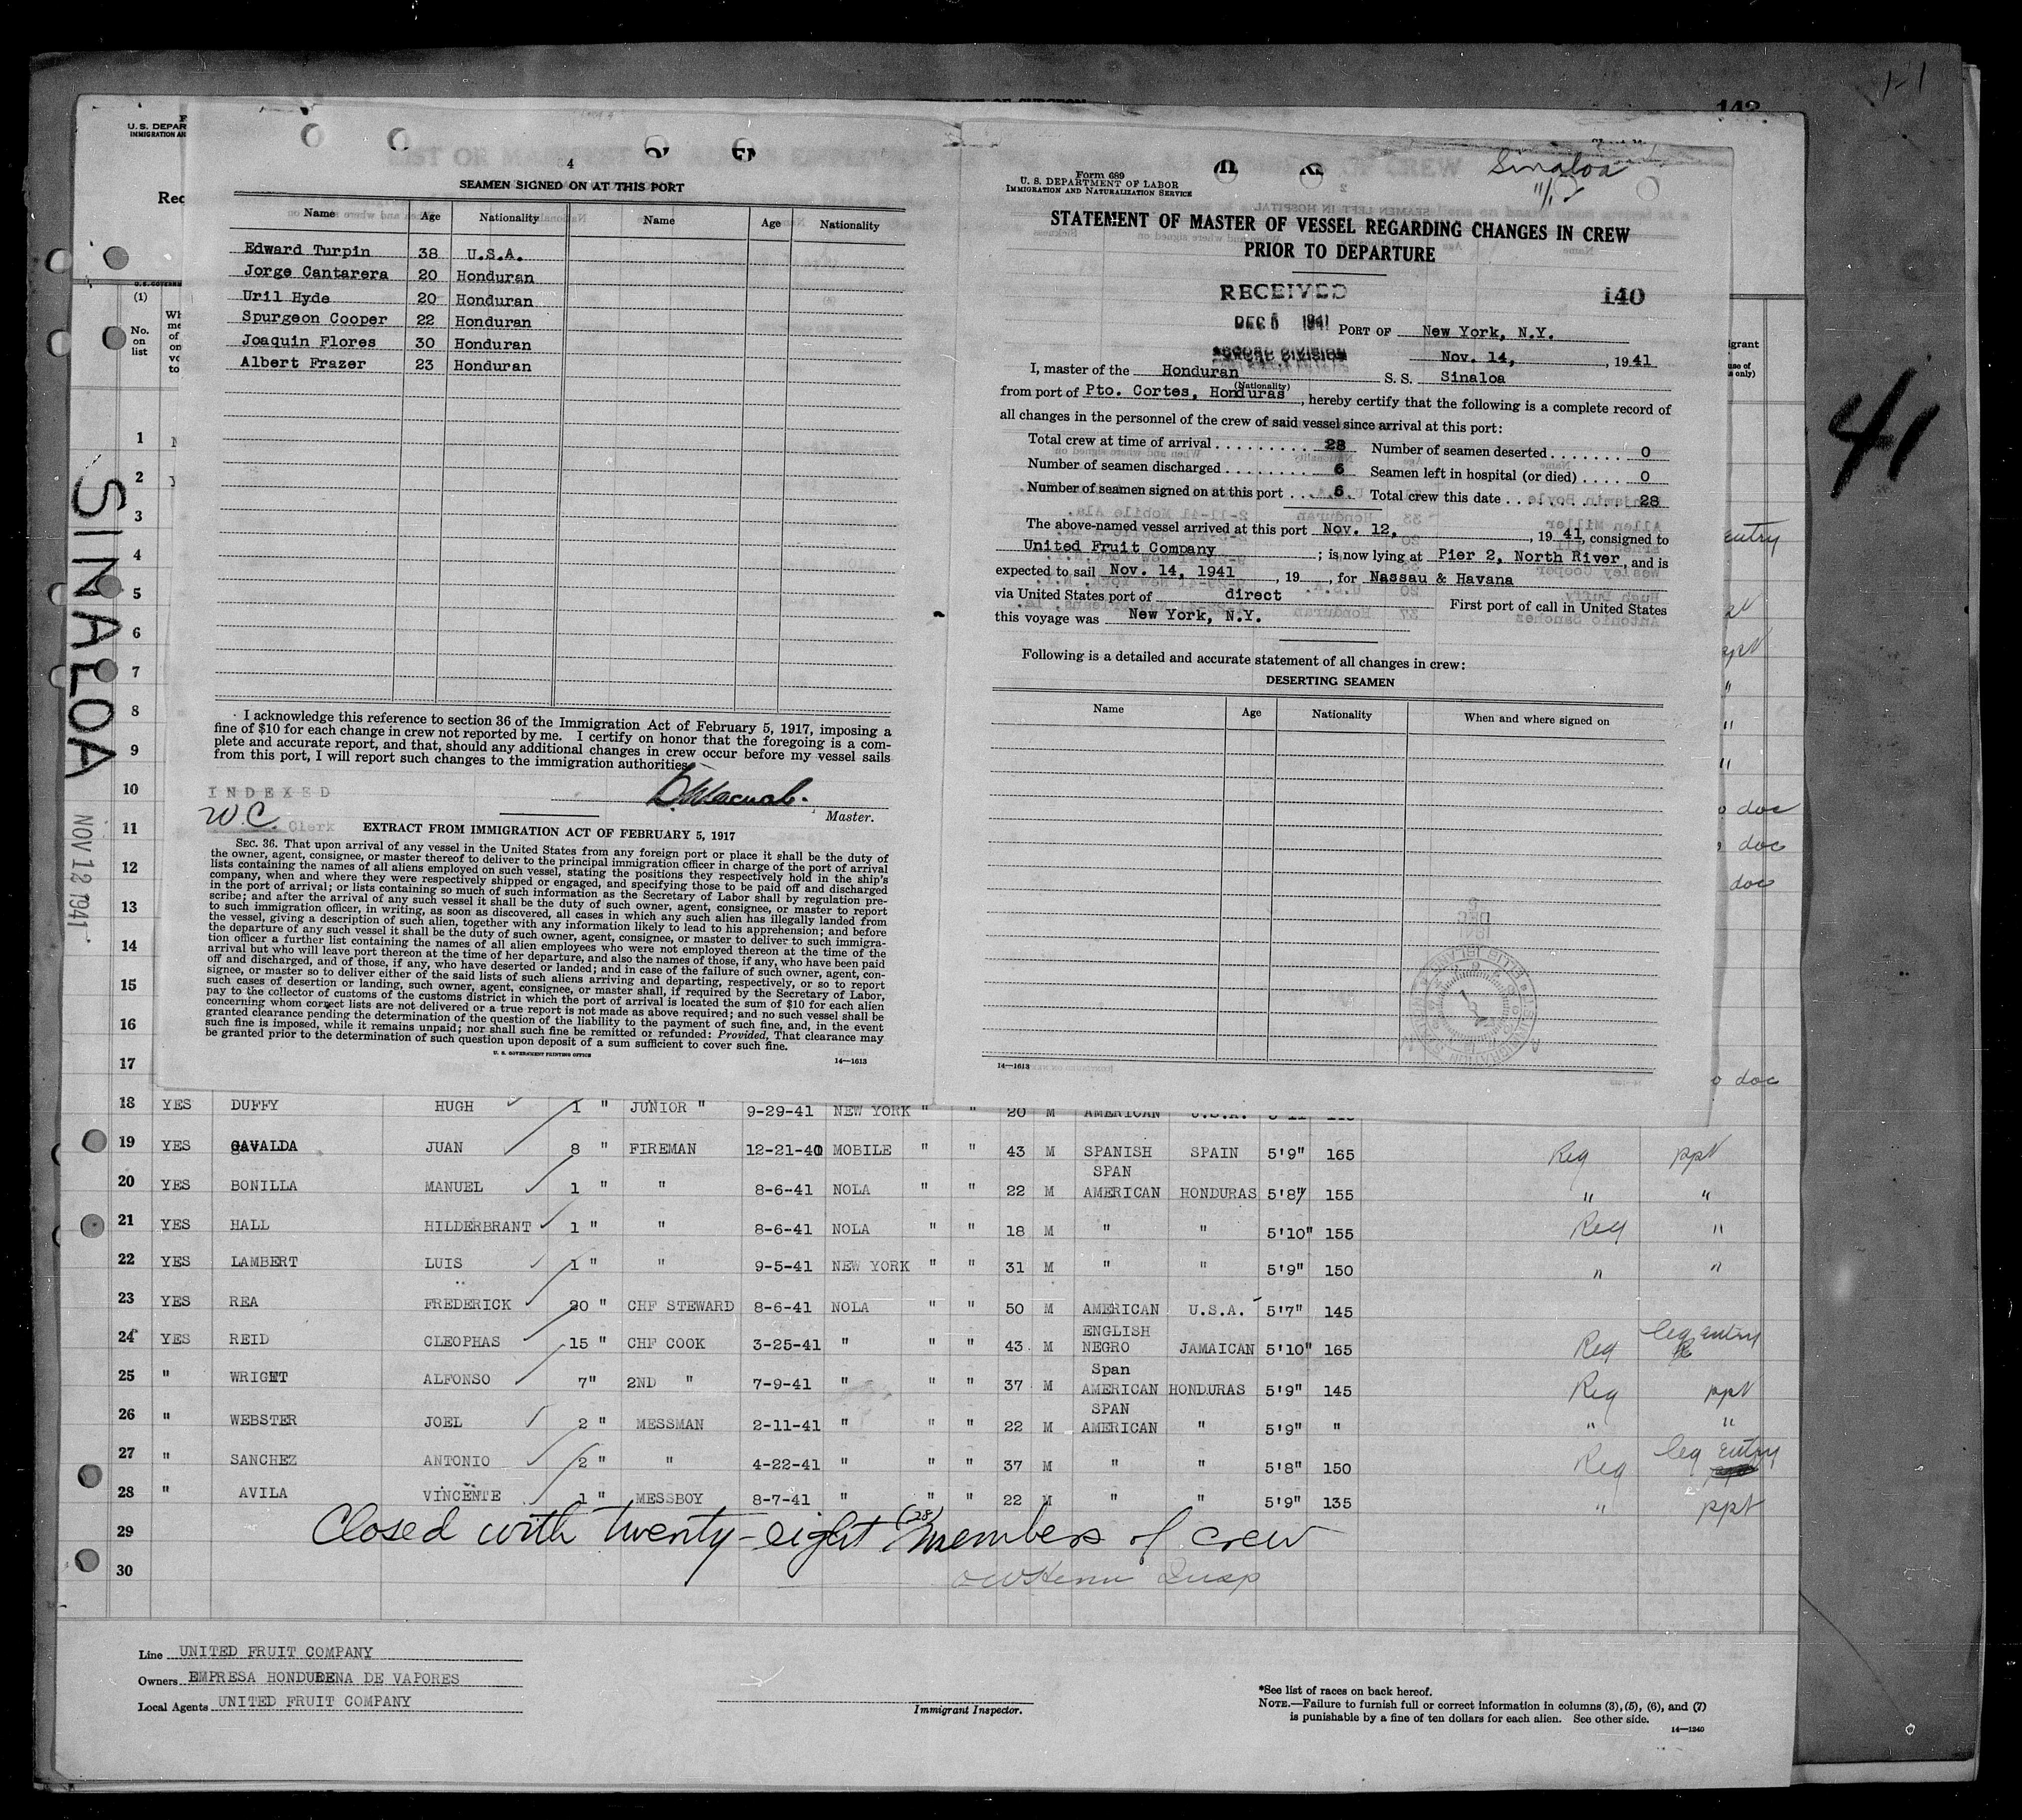 U.S. DEPAR
IMMIGRATION AN
Rec
(1)
No.
on
list
SINALOA
NOV 12 1941
4
SEAMEN SIGNED ON AT THIS PORT
Name Age Nationality Name Age Nationality
Edward Turpin 38 U.S.A.
Jorge Cantarera 20 Honduran
Uril Hyde 20 Honduran
Spurgeon Cooper 22 Honduran
Joaquin Flores 30 Honduran
Albert Frazer 23 Honduran
I acknowledge this reference to section 36 of the Immigration Act of February 5, 1917, imposing a
fine of $10 for each change in crew not reported by me. I certify on honor that the foregoing is a com-
plete and accurate report, and that, should any additional changes in crew occur before my vessel sails
from this port, I will report such changes to the immigration authorities.
INDEXED
W.C. Clerk
Master.
EXTRACT FROM IMMIGRATION ACT OF FEBRUARY 5, 1917
SEC. 36. That upon arrival of any vessel in the United States from any foreign port or place it shall be the duty of
the owner, agent, consignee, or master thereof to deliver to the principal immigration officer in charge of the port of arrival
lists containing the names of all aliens employed on such vessel, stating the positions they respectively hold in the ship's
company, when and where they were respectively shipped or engaged, and specifying those to be paid off and discharged
in the port of arrival; or lists containing so much of such information as the Secretary of Labor shall by regulation pre-
scribe; and after the arrival of any such vessel it shall be the duty of such owner, agent, consignee, or master to report
to such immigration officer, in writing, as soon as discovered, all cases in which any such alien has illegally landed from
the vessel, giving a description of such alien, together with any information likely to lead to his apprehension; and before
the departure of any such vessel it shall be the duty of such owner, agent, consignee, or master to deliver to such immigra-
tion officer a further list containing the names of all alien employees who were not employed thereon at the time of the
arrival but who will leave port thereon at the time of her departure, and also the names of those, if any, who have been paid
off and discharged, and of those, if any, who have deserted or landed; and in case of the failure of such owner, agent, con-
signee, or master so to deliver either of the said lists of such aliens arriving and departing, respectively, or so to report
such cases of desertion or landing, such owner, agent, consignee, or master shall, if required by the Secretary of Labor,
pay to the collector of customs of the customs district in which the port of arrival is located the sum of $10 for each alien
concerning whom correct lists are not delivered or a true report is not made as above required; and no such vessel shall be
granted clearance pending the determination of the question of the liability to the payment of such fine, and, in the event
such fine is imposed, while it remains unpaid; nor shall such fine be remitted or refunded: Provided, That clearance may
be granted prior to the determination of such question upon deposit of a sum sufficient to cover such fine.
U. S. GOVERNMENT PRINTING OFFICE 14—1613
Form 689
U. S. DEPARTMENT OF LABOR
IMMIGRATION AND NATURALIZATION SERVICE
Sinaloa
STATEMENT OF MASTER OF VESSEL REGARDING CHANGES IN CREW
PRIOR TO DEPARTURE
RECEIVED 140
DEC 5 1941 PORT OF New York, N.Y.
RECORD DIVISION Nov. 14, , 1941
I, master of the Honduran S. S. Sinaloa
(Nationality)
from port of Pto. Cortes, Honduras, hereby certify that the following is a complete record of
all changes in the personnel of the crew of said vessel since arrival at this port:
Total crew at time of arrival 28 Number of seamen deserted 0
Number of seamen discharged 6 Seamen left in hospital (or died) 0
Number of seamen signed on at this port 6 Total crew this date 28
The above-named vessel arrived at this port Nov. 12, , 1941, consigned to
United Fruit Company ; is now lying at Pier 2, North River, and is
expected to sail Nov. 14, 1941 , 19 , for Nassau & Havana
via United States port of direct First port of call in United States
this voyage was New York, N.Y.
Following is a detailed and accurate statement of all changes in crew:
DESERTING SEAMEN
Name Age Nationality When and where signed on
14—1613
41
142
1
2
3
4 entry
5
6
7
8
9
10
11
12
13
14
15
16
17 doc
18 YES DUFFY HUGH 1 " JUNIOR " 9-29-41 NEW YORK " " 20 M AMERICAN U.S.A.
19 YES GAVALDA JUAN 8 " FIREMAN 12-21-40 MOBILE " " 43 M SPANISH SPAIN 5'9" 165 Reg ppt
20 YES BONILLA MANUEL 1 " " 8-6-41 NOLA " " 22 M SPAN AMERICAN HONDURAS 5'8" 155 " "
21 YES HALL HILDERBRANT 1 " " 8-6-41 NOLA " " 18 M " " 5'10" 155 Reg "
22 YES LAMBERT LUIS 1 " " 9-5-41 NEW YORK " " 31 M " " 5'9" 150 " "
23 YES REA FREDERICK 20 " CHF STEWARD 8-6-41 NOLA " " 50 M AMERICAN U.S.A. 5'7" 145
24 YES REID CLEOPHAS 15 " CHF COOK 3-25-41 " " " 43 M ENGLISH NEGRO JAMAICAN 5'10" 165 Reg leg entry
25 " WRIGHT ALFONSO 7" 2ND " 7-9-41 " " " 37 M Span AMERICAN HONDURAS 5'9" 145 Reg ppt
26 " WEBSTER JOEL 2 " MESSMAN 2-11-41 " " " 22 M SPAN AMERICAN " 5'9" " " "
27 " SANCHEZ ANTONIO 2 " " 4-22-41 " " " 37 M " " 5'8" 150 Reg leg entry
28 " AVILA VINCENTE 1 " MESSBOY 8-7-41 " " " 22 M " " 5'9" 135 " ppt
29 Closed with twenty-eight (28) members of crew
30
Line UNITED FRUIT COMPANY
Owners EMPRESA HONDURENA DE VAPORES
Local Agents UNITED FRUIT COMPANY
Immigrant Inspector.
*See list of races on back hereof.
NOTE.—Failure to furnish full or correct information in columns (3), (5), (6), and (7)
is punishable by a fine of ten dollars for each alien. See other side.
14—1240